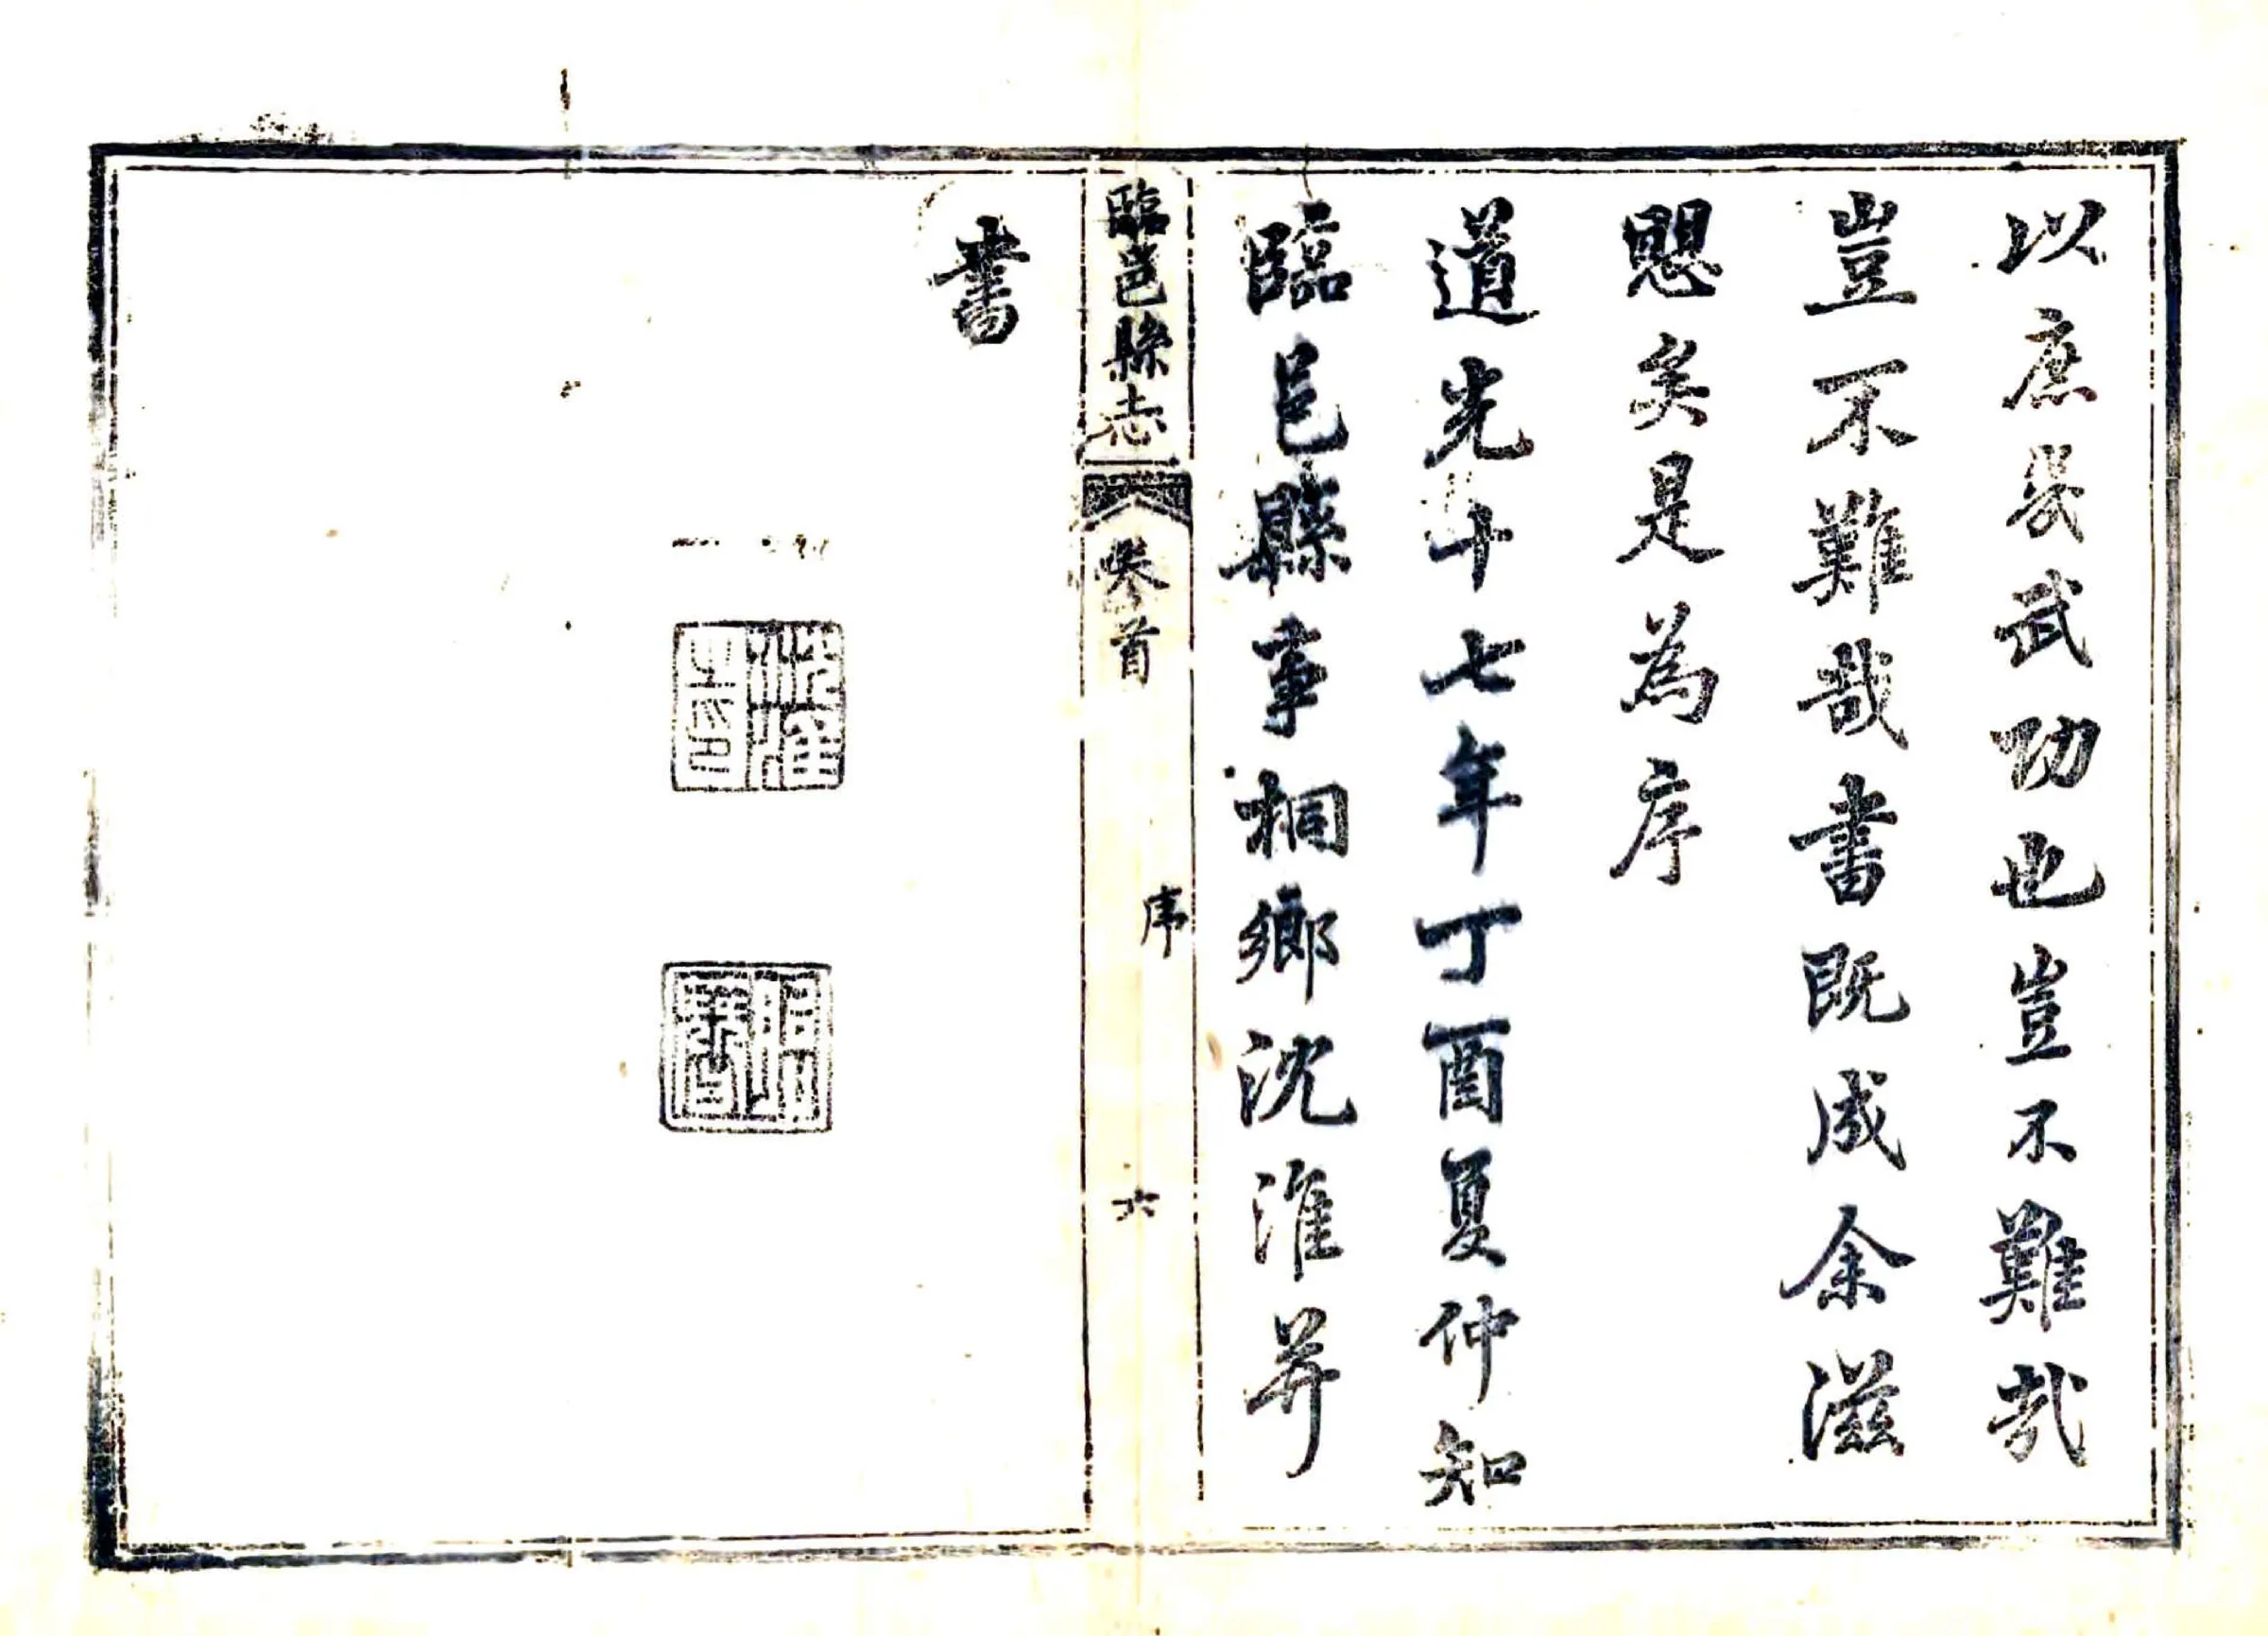 以庶㡬武功也豈不難哉
豈不難哉書既成余滋
愳矣是為序
道光十七年丁酉夏仲知
臨邑縣事桐鄉沈淮并
書
臨邑縣志
卷首
序
六
沈淮之印